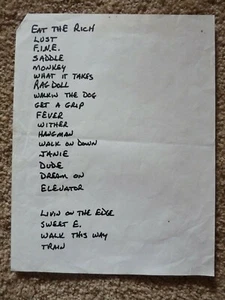 EAT THE RICH
LUST
F.I.N.E.
SADDLE
MONKEY
WHAT IT TAKES
RAG DOLL
WALKIN THE DOG
GET A GRIP
FEVER
WITHER
HANGMAN
WALK ON DOWN
JANIE
DUDE
DREAM ON
ELEVATOR
LIVIN ON THE EDGE
SWEET E.
WALK THIS WAY
TRAIN